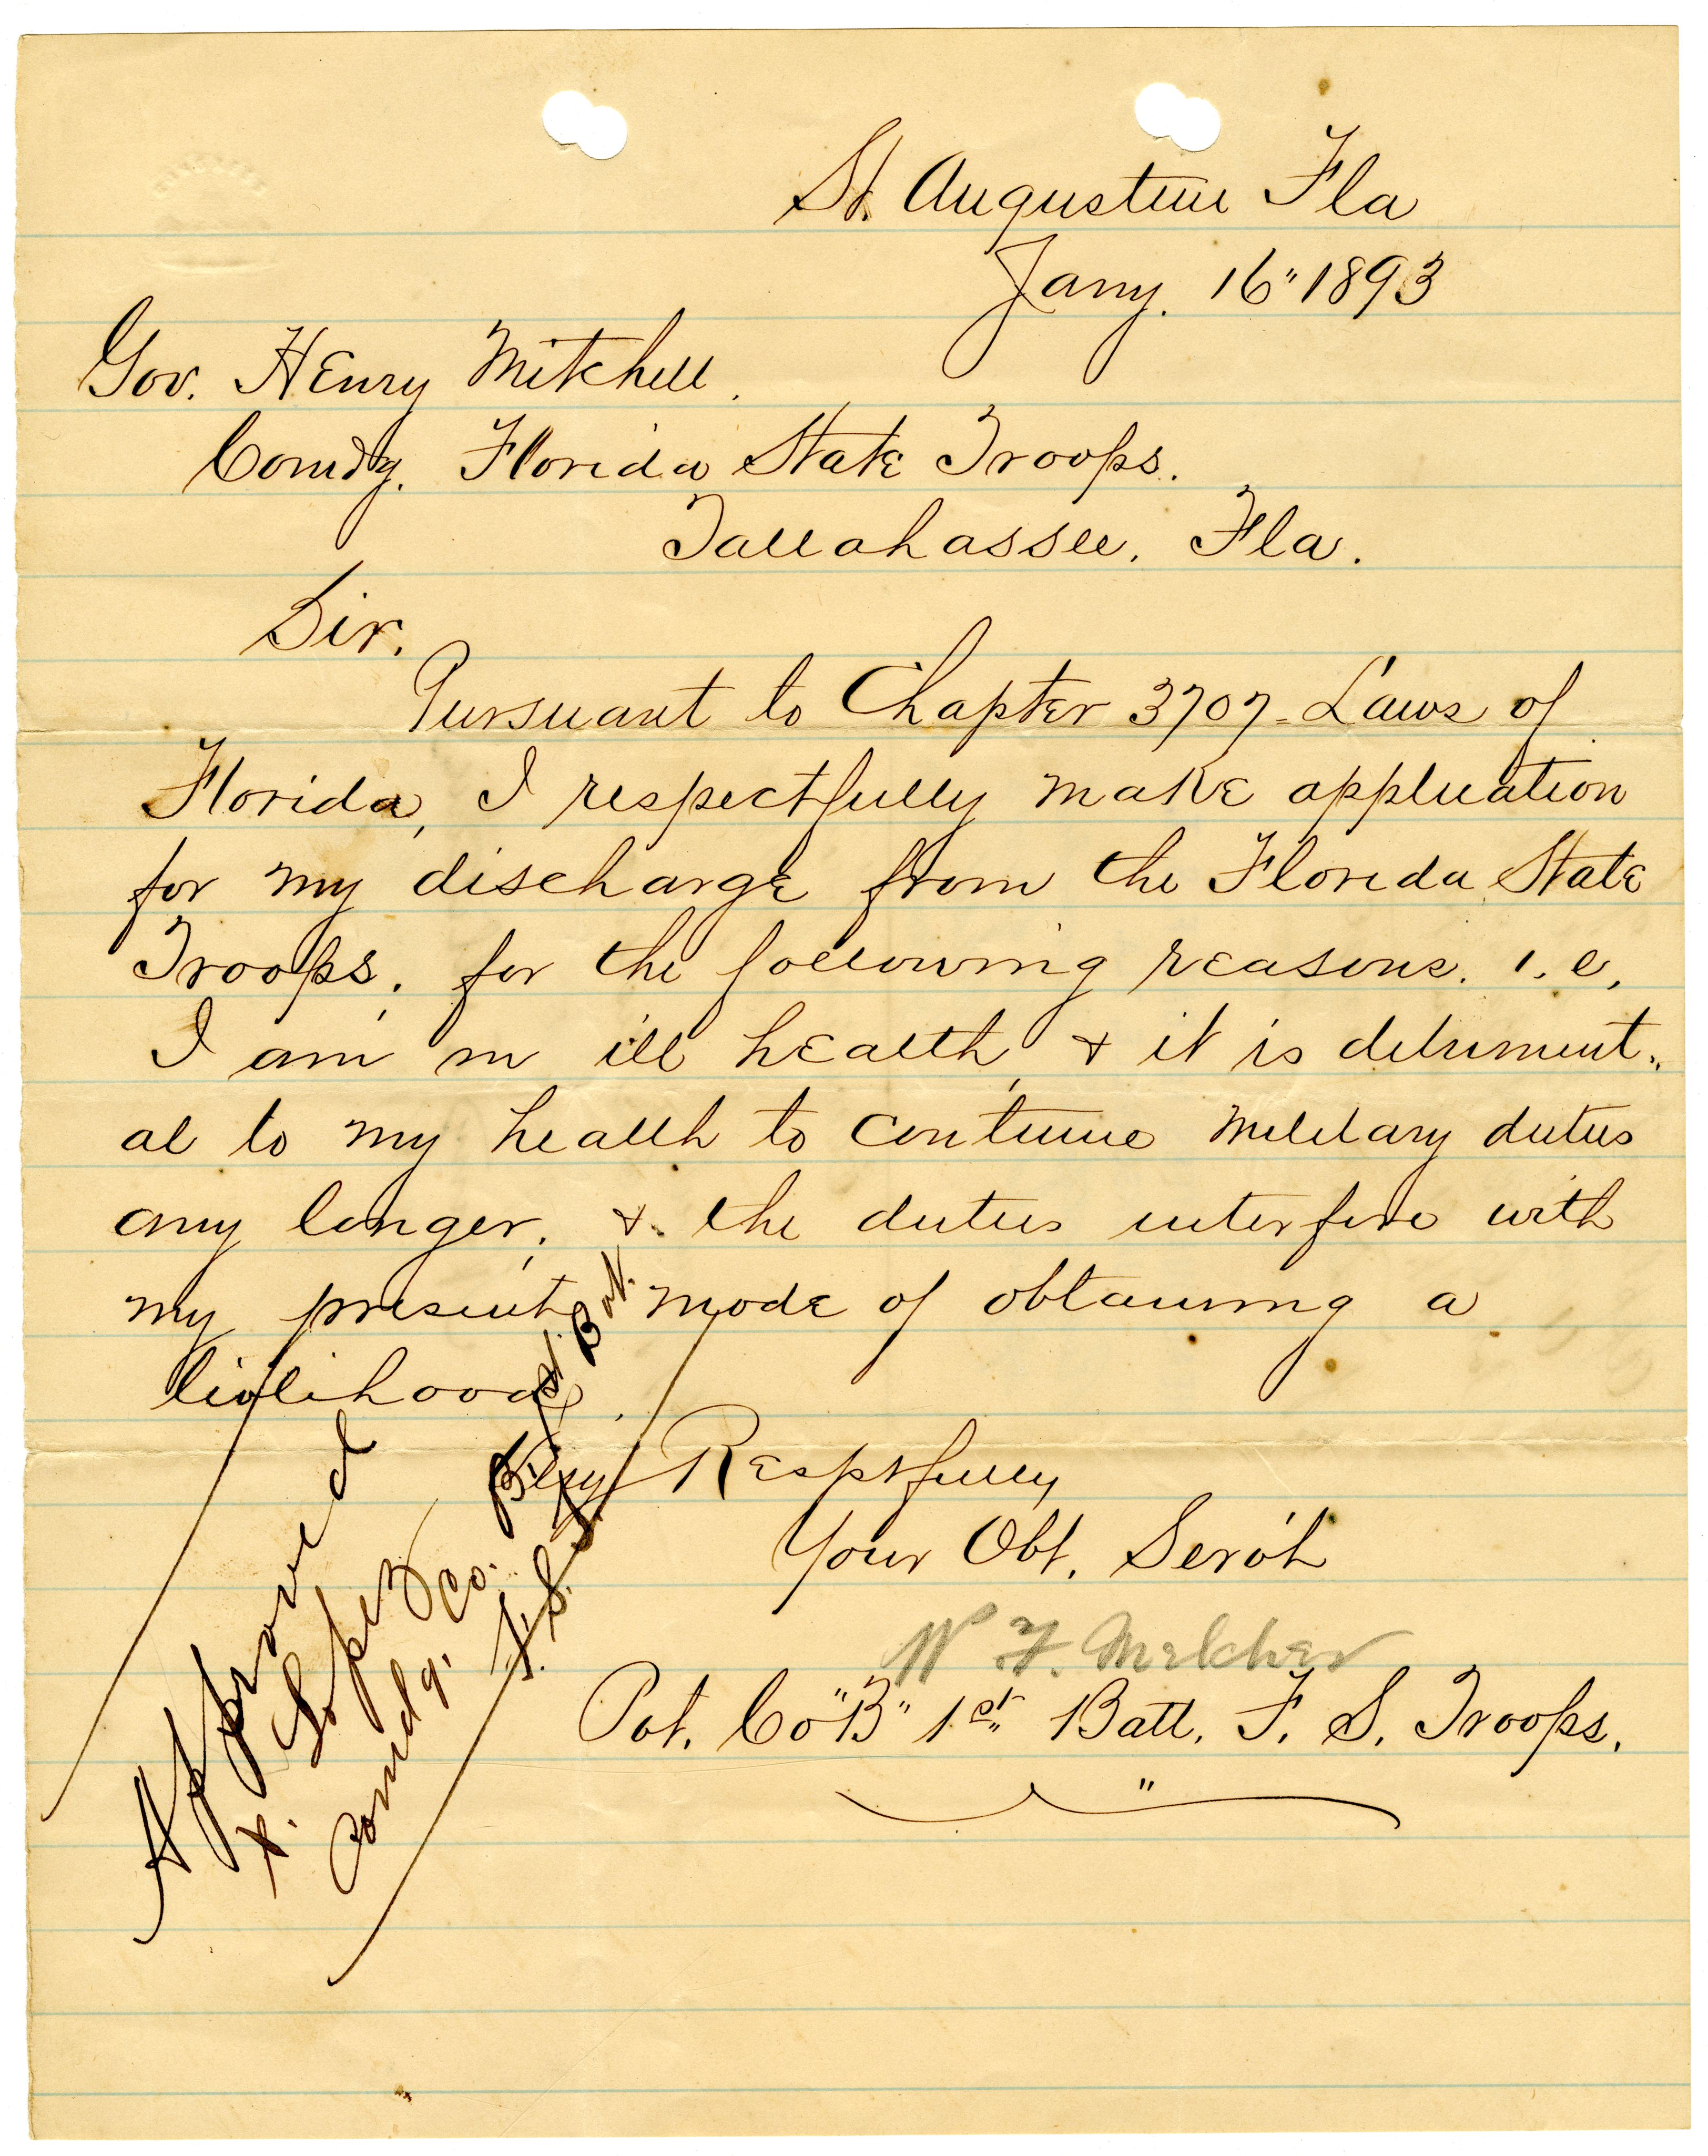 St. Augustine Fla
Jany. 16" 1893
Gov. Henry Mitchell.
Comdg. Florida State Troops.
Tallahassee, Fla.
Sir.
Pursuant to Chapter 3707- Laws of
Florida, I respectfully make application
for my discharge from the Florida State
Troops; for the following reasons. i.e,
I am in ill health, & it is detriment-
al to my health to continue military duties
any longer; & the duties interfere with
my present mode of obtaining a
livlihood.
Very Resptfully
Your Obt. Serv't
W. F. Melcher
Pvt. Co "B" 1st Batt. F. S. Troops.
"
Approved
X. Lopez
Comdg. Co. B, 1st. Bat.
F. S. T.